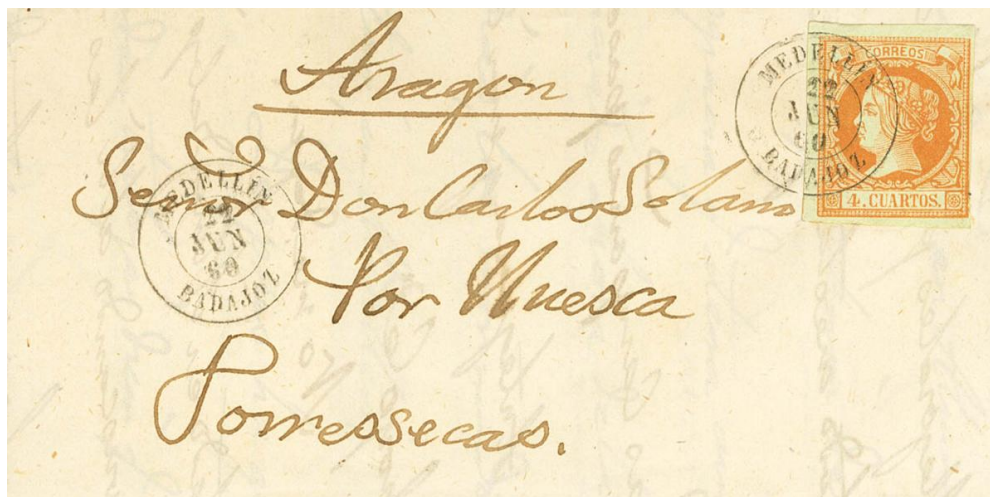 Aragon
CORREOS
MEDELLIN
22
JUN
60
BADAJOZ
4. CUARTOS.
Señor Don Carlos Solano
MEDELLIN
22
JUN
60
BADAJOZ
Por Huesca
Torressecas.